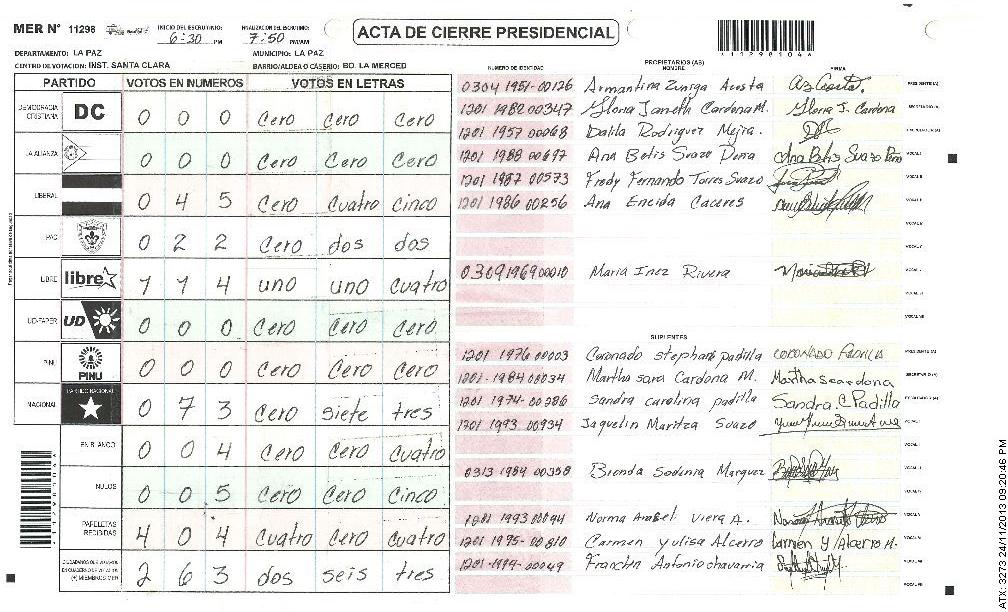 MER N° 11298
INICIO DEL ESCRUTINIO: 6:30 PM
FINALIZACIÓN DEL ESCRUTINIO: 7:50 PM/AM
ACTA DE CIERRE PRESIDENCIAL
DEPARTAMENTO: LA PAZ
MUNICIPIO: LA PAZ
CENTRO DE VOTACION: INST. SANTA CLARA
BARRIO/ALDEA O CASERIO: BO. LA MERCED
PARTIDO VOTOS EN NUMEROS VOTOS EN LETRAS
DEMOCRACIA CRISTIANA DC 0 0 0 cero cero cero
LA ALIANZA 0 0 0 cero cero cero
LIBERAL 0 4 5 cero cuatro cinco
PAC 0 2 2 cero dos dos
LIBRE libre 1 1 4 uno uno cuatro
UD-FAPER UD 0 0 0 cero cero cero
PINU PINU 0 0 0 cero cero cero
NACIONAL PARTIDO NACIONAL 0 7 3 cero siete tres
EN BLANCO 0 0 4 cero cero cuatro
NULOS 0 0 5 cero cero cinco
PAPELETAS RECIBIDAS 4 0 4 cuatro cero cuatro
(+) MIEMBROS MER 2 6 3 dos seis tres
NUMERO DE IDENTIDAD PROPIETARIOS (AS) NOMBRE FIRMA
0304 1951-00126 Armantina Zuniga Acosta PRESIDENTE (A)
1201 1982 00347 Gloria Janeth Cardona M. Gloria J. Cardona SECRETARIO (A)
1201 1957 00068 Dalila Rodriguez Mejia.
1201 1988 00697 Ana Betis Suazo Pena Ana Betis Suazo VOCAL I
1201 1987 00573 Fredy Fernando Torres Suazo VOCAL II
1201 1986 00256 Ana Eneida Caceres VOCAL III
0309 1969 00010 Maria Inez Rivera
SUPLENTES
1201 1976 00003 Coronado stephans padilla CORONADO PADILLA PRESIDENTE (A)
1201-1984 00034 Martha sara Cardona M. Martha s cardona SECRETARIO (A)
1201 1974-00286 Sandra carolina padilla Sandra C. Padilla
1201 1993 00934 Jaquelin Maritza Suazo
0313 1984 00358 Brenda Sodenia Marquez
1201 1993 00094 Norma Anabel Viera A.
1201-1995-00810 Carmen Yulisa Alcerro Carmen Y Alcerro M.
1201-1994-00049 Antonio chavarria
11298104
ATX-3273 24/11/2013 09:20:46 PM